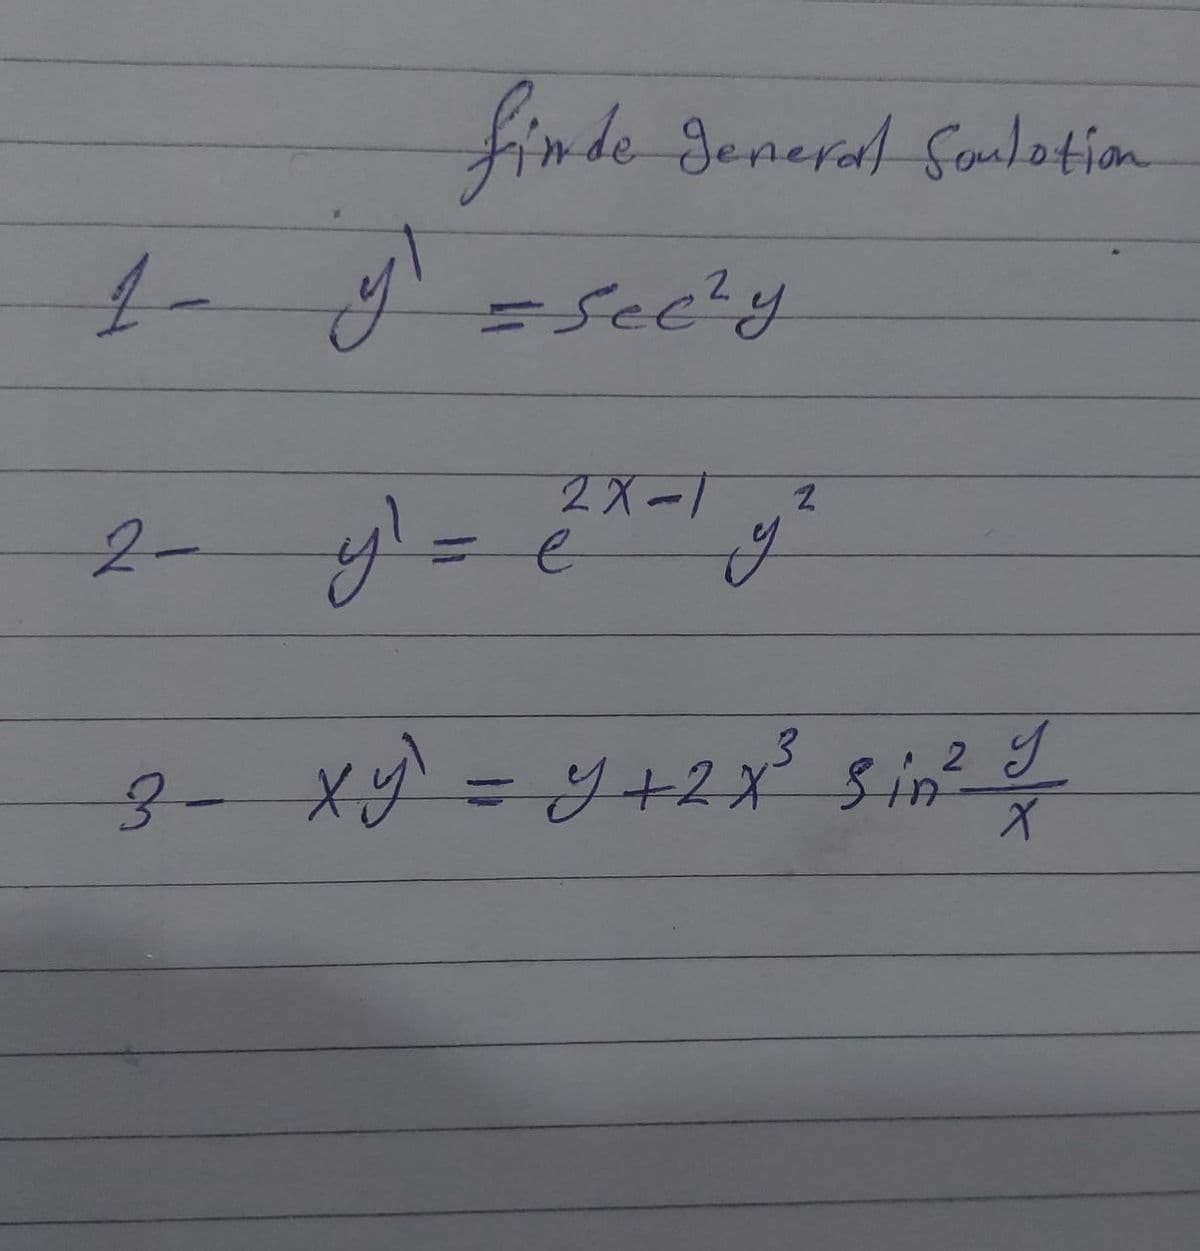 finde general Soulotion
1- y' = sec²y
2- y' = e^{2x-1} y²
3- xy' = y + 2x³ sin² y/x